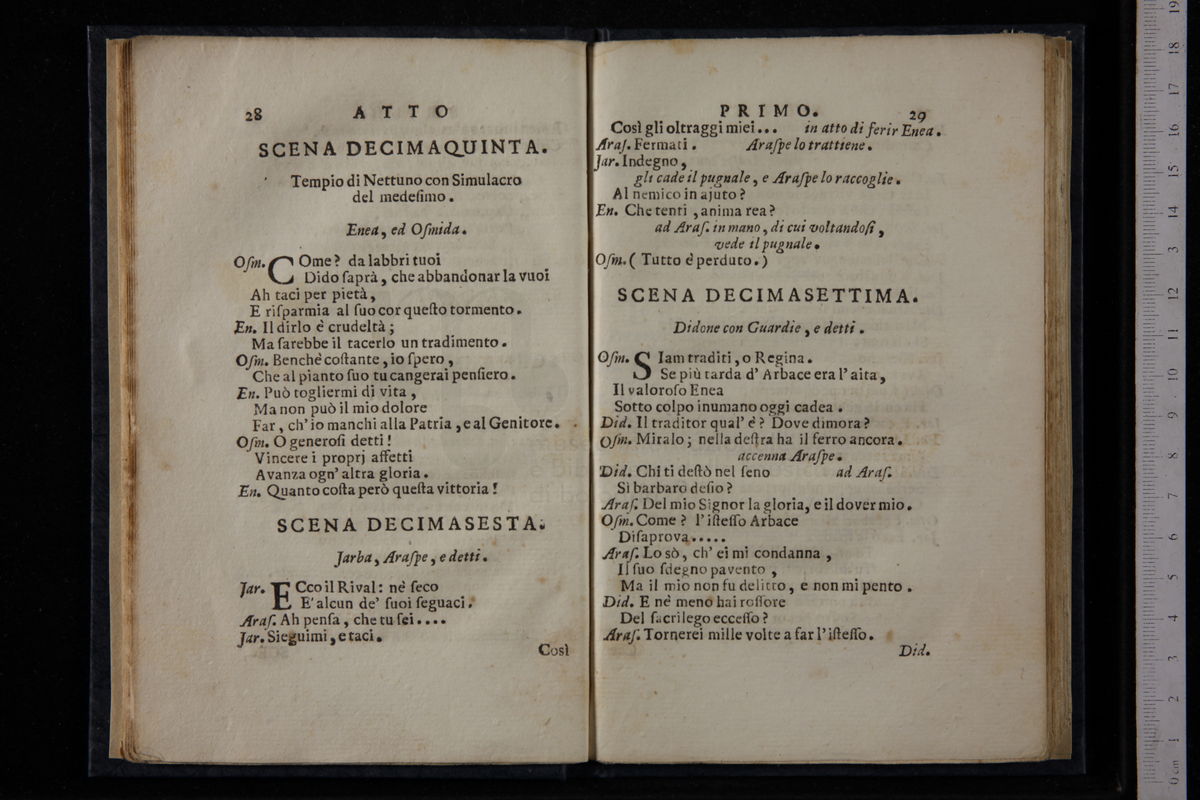 28 ATTO
SCENA DECIMAQUINTA.
Tempio di Nettuno con Simulacro
del medeſimo.
Enea, ed Oſmida.
Oſm. COme? da labbri tuoi
Dido ſaprà, che abbandonar la vuoi
Ah taci per pietà,
E riſparmia al ſuo cor queſto tormento.
En. Il dirlo è crudeltà;
Ma ſarebbe il tacerlo un tradimento.
Oſm. Benchè coſtante, io ſpero,
Che al pianto ſuo tu cangerai penſiero.
En. Può togliermi di vita,
Ma non può il mio dolore
Far, ch' io manchi alla Patria, e al Genitore.
Oſm. O generoſi detti!
Vincere i proprj affetti
Avanza ogn' altra gloria.
En. Quanto coſta però queſta vittoria!
SCENA DECIMASESTA.
Jarba, Araſpe, e detti.
Jar. ECco il Rival: nè ſeco
E' alcun de' ſuoi ſeguaci.
Araſ. Ah penſa, che tu ſei....
Jar. Sieguimi, e taci.
Così
PRIMO. 29
Così gli oltraggi miei... in atto di ferir Enea.
Araſ. Fermati. Araſpe lo trattiene.
Jar. Indegno,
gli cade il pugnale, e Araſpe lo raccoglie.
Al nemico in ajuto?
En. Che tenti, anima rea?
ad Araſ. in mano, di cui voltandoſi,
vede il pugnale.
Oſm. (Tutto è perduto.)
SCENA DECIMASETTIMA.
Didone con Guardie, e detti.
Oſm. SIam traditi, o Regina.
Se più tarda d' Arbace era l' aita,
Il valoroſo Enea
Sotto colpo inumano oggi cadea.
Did. Il traditor qual' è? Dove dimora?
Oſm. Miralo; nella deſtra ha il ferro ancora.
accenna Araſpe.
Did. Chi ti deſtò nel ſeno ad Araſ.
Sì barbaro deſio?
Araſ. Del mio Signor la gloria, e il dover mio.
Oſm. Come? l' iſteſſo Arbace
Diſaprova.....
Araſ. Lo sò, ch' ei mi condanna,
Il ſuo ſdegno pavento,
Ma il mio non fu delitto, e non mi pento.
Did. E nè meno hai roſſore
Del ſacrilego ecceſſo?
Araſ. Tornerei mille volte a far l' iſteſſo.
Did.
0 cm 1 2 3 4 5 6 7 8 9 10 11 12 13 14 15 16 17 18 19